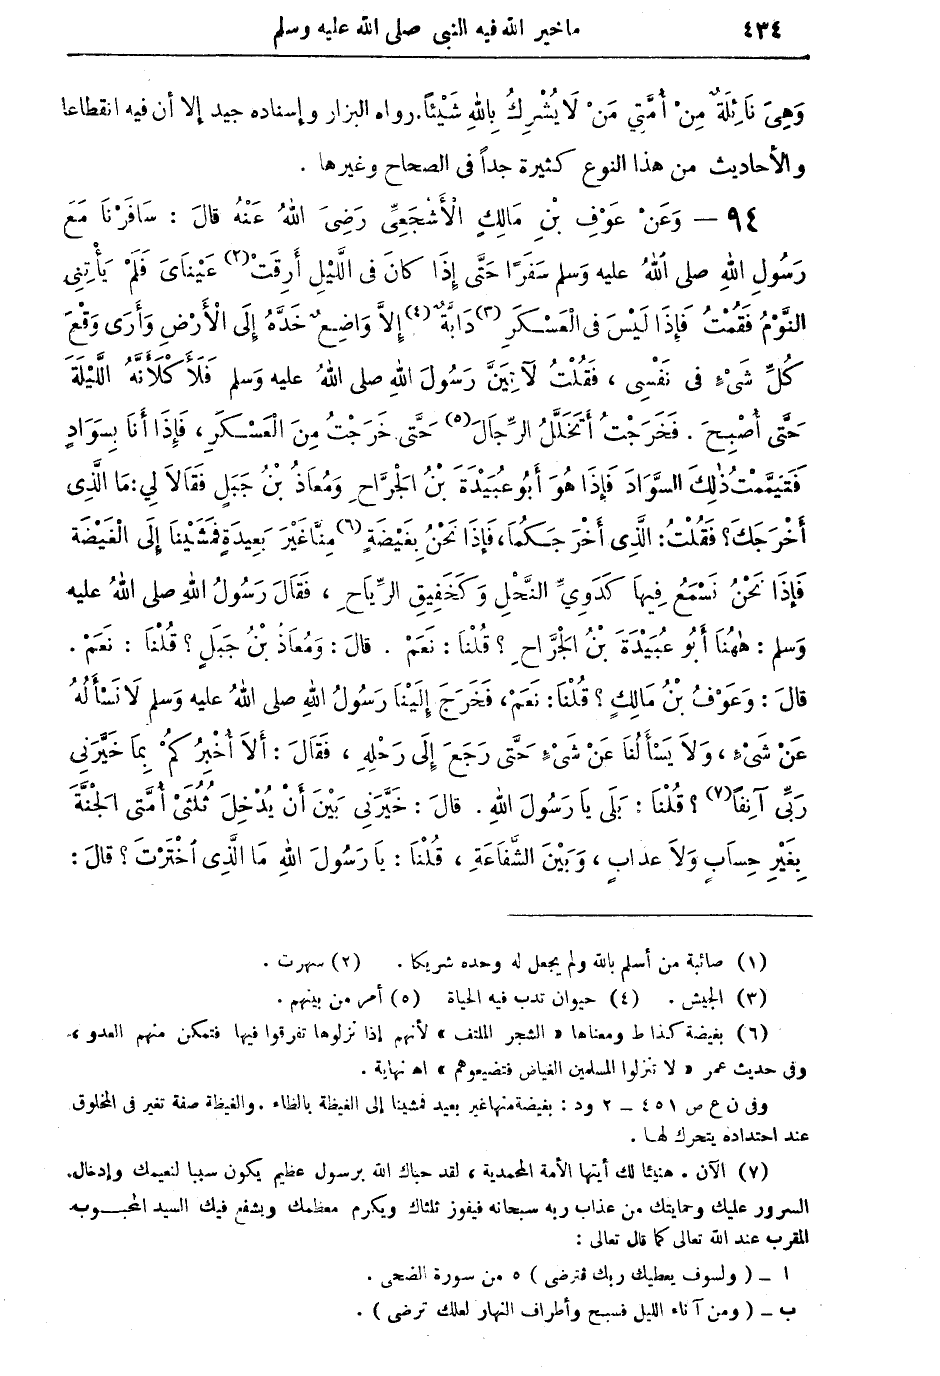 ٤٣٤ ماخير الله فيه النبى صلى الله عليه وسلم
وَهِىَ نَائِلَةٌ مِنْ أُمَّتِي مَنْ لَا يُشْرِكُ بِاللهِ شَيْئاً. رواه البزار وإسناده جيد إلا أن فيه انقطاعا
والأحاديث من هذا النوع كثيرة جداً فى الصحاح وغيرها .
٩٤ – وَعَنْ عَوْفِ بْنِ مَالِكٍ الْأَشْجَعِىِّ رَضِىَ اللهُ عَنْهُ قالَ : سَافَرْنَا مَعَ
رَسُولِ اللهِ صلى اللهُ عليه وسلم سَفَرًا حَتَّى إِذَا كانَ فى اللَّيْلِ أَرِقَتْ(٢) عَيْنَاىَ فَلَمْ يَأْتِنِى
النَّوْمُ فَقُمْتُ فَإِذَا لَيْسَ فى الْعَسْكَرِ(٣) دَابَّةٌ(٤) إِلاَّ وَاضِعٌ خَدَّهُ إِلَى الْأَرْضِ وَأَرَى وَقْعَ
كُلِّ شَىْءٍ فى نَفْسِى ، فَقُلْتُ لَآتِيَنَّ رَسُولَ اللهِ صلى اللهُ عليه وَسلم فَلَأَكْلَأَنَّهُ اللَّيْلَةَ
حَتَّى أُصْبِحَ . فَخَرَجْتُ أَتَخَلَّلُ الرِّجَالَ(٥) حَتَّى خَرَجْتُ مِنَ الْعَسْكَرِ ، فَإِذَا أَنَا بِسَوَادٍ
فَتَيَمَّمْتُ ذٰلِكَ السَّوَادَ فَإِذَا هُوَ أَبُو عُبَيْدَةَ بْنُ الْجَرَّاحِ وَمُعَاذُ بْنُ جَبَلٍ فَقَالاَ لِي: مَا الَّذِى
أَخْرَجَكَ؟ فَقُلْتُ: الَّذِى أَخْرَجَكُمَا، فَإِذَا نَحْنُ بِغَيْضَةٍ(٦) مِنَّا غَيْرَ بَعِيدَةٍ فَمَشَيْنَا إِلَى الْغَيْضَةِ
فَإِذَا نَحْنُ نَسْمَعُ فِيهَا كَدَوِيِّ النَّحْلِ وَكَخَفِيقِ الرِّيَاحِ ، فَقَالَ رَسُولُ اللهِ صلى اللهُ عليه
وَسلم : هٰهُنَا أَبُو عُبَيْدَةَ بْنُ الْجَرَّاحِ ؟ قُلْنَا : نَعَمْ . قالَ : وَمُعَاذُ بْنُ جَبَلٍ ؟ قُلْنَا : نَعَمْ .
قالَ : وَعَوْفُ بْنُ مَالِكٍ ؟ قُلْنَا: نَعَمْ، فَخَرَجَ إِلَيْنَا رَسُولُ اللهِ صلى اللهُ عليه وَسلم لَا نَسْأَلُهُ
عَنْ شَىْءٍ ، وَلَا يَسْأَلُنَا عَنْ شَىْءٍ حَتَّى رَجَعَ إِلَى رَحْلِهِ ، فَقَالَ : أَلاَ أُخْبِرُكُمْ بِمَا خَيَّرَنِي
رَبِّي آنِفاً(٧) ؟ قُلْنَا : بَلَى يَا رَسُولَ اللهِ . قالَ : خَيَّرَنِي بَيْنَ أَنْ يُدْخِلَ ثُلُثَىْ أُمَّتِى الْجَنَّةَ
بِغَيْرِ حِسَابٍ وَلاَ عذابٍ ، وَبَيْنَ الشَّفَاعَةِ ، قُلْنَا : يا رَسُولَ اللهِ مَا الَّذِى اخْتَرْتَ ؟ قالَ :
(١) صائبة من أسلم بالله ولم يجعل له وحده شريكا . (٢) سهرت .
(٣) الجيش . (٤) حيوان تدب فيه الحياة (٥) أمر من بينهم .
(٦) بغيضة كذا ط ومعناها « الشجر الملتف » لأنهم إذا نزلوها تفرقوا فيها فتمكن منهم العدو ،
وفى حديث عمر « لا تنزلوا المسلمين الغياض فتضيعوهم » اه نهاية .
وفى ن ع ص ٤٥١ – ٢ ود : بغيضة منها غير بعيد فمشينا إلى الغيظة بالظاء . والغيظة صفة تغير فى المخلوق
عند احتداده يتحرك لها .
(٧) الآن . هنيئا لك أيتها الأمة المحمدية ، لقد حباك الله برسول عظيم يكون سببا لنعيمك وإدخال
السرور عليك وحمايتك من عذاب ربه سبحانه فيفوز ثلثاك ويكرم معظمك ويشفع فيك السيد المحبوب
المقرب عند الله تعالى كما قال تعالى :
ا – ( ولسوف يعطيك ربك فترضى ) ٥ من سورة الضحى .
ب – ( ومن آناء الليل فسبح وأطراف النهار لعلك ترضى ) .